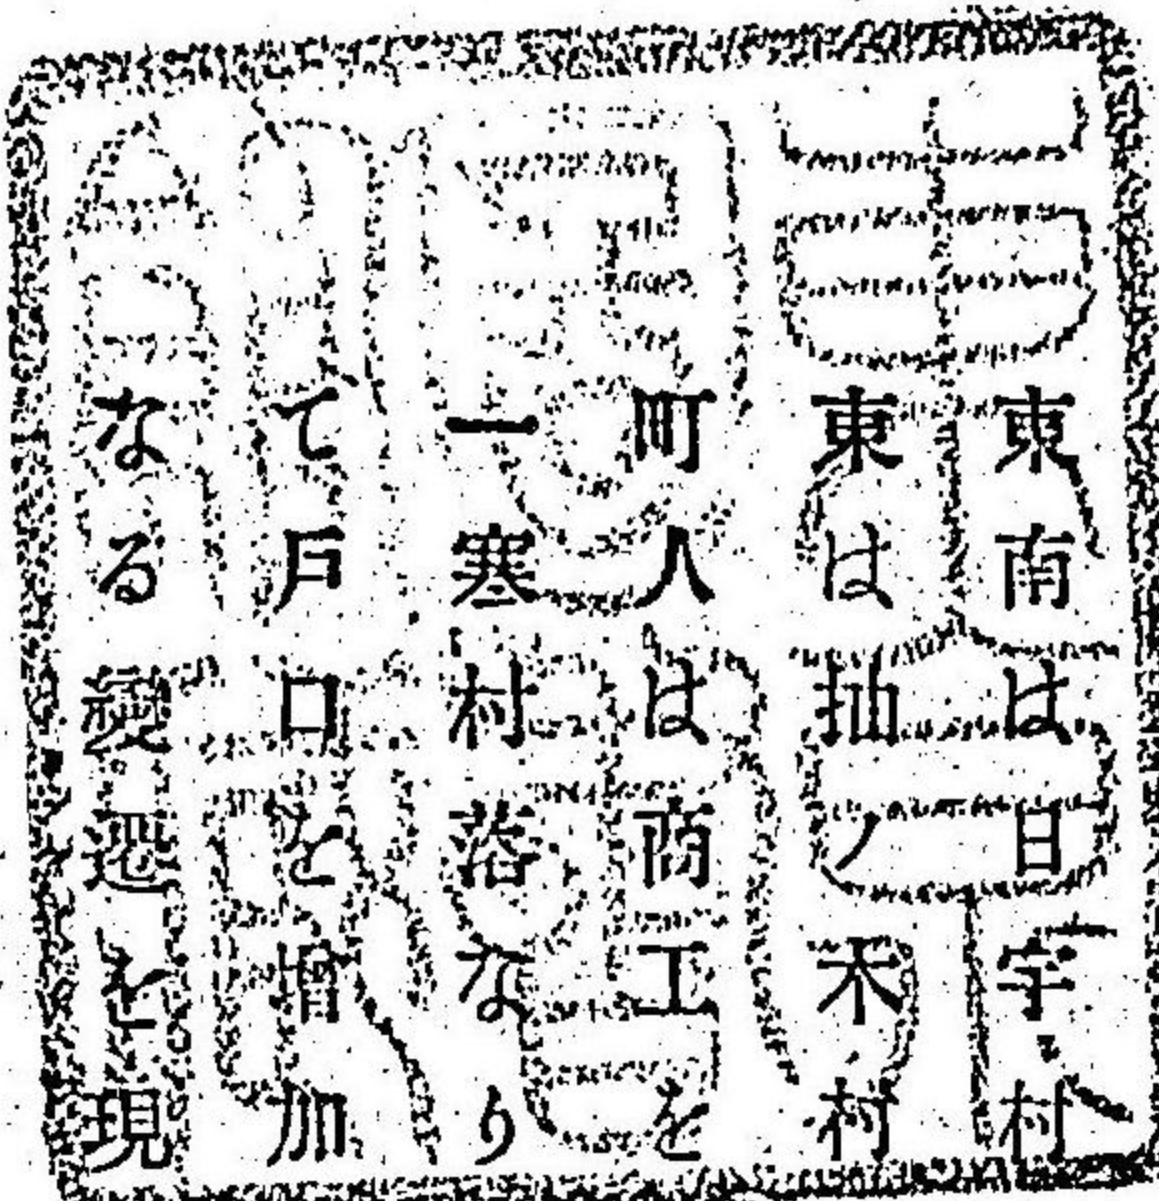 東南は日宇村
東は抽ノ木村
町人は商工を
一寒村落なり
て戸口を増加
なる變遷を現